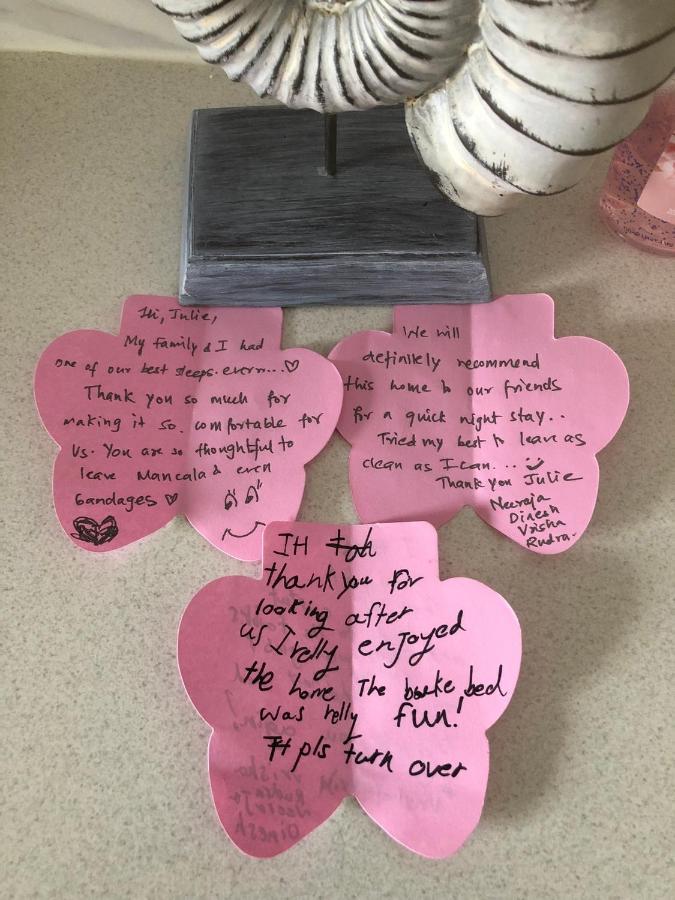 Hi, Julie,
My family & I had
one of our best sleeps. everrr...
Thank you so much for
making it so comfortable for
us. You are so thoughtful to
leave Mancala & even
bandages
We will
definitely recommend
this home to our friends
for a quick night stay..
Tried my best to leave as
clean as I can...
Thank you Julie
Neeraja
Dinesh
Vrisha
Rudra.
thank you for
looking after
us I relly enjoyed
the home The bunke bed
was relly fun!
pls turn over